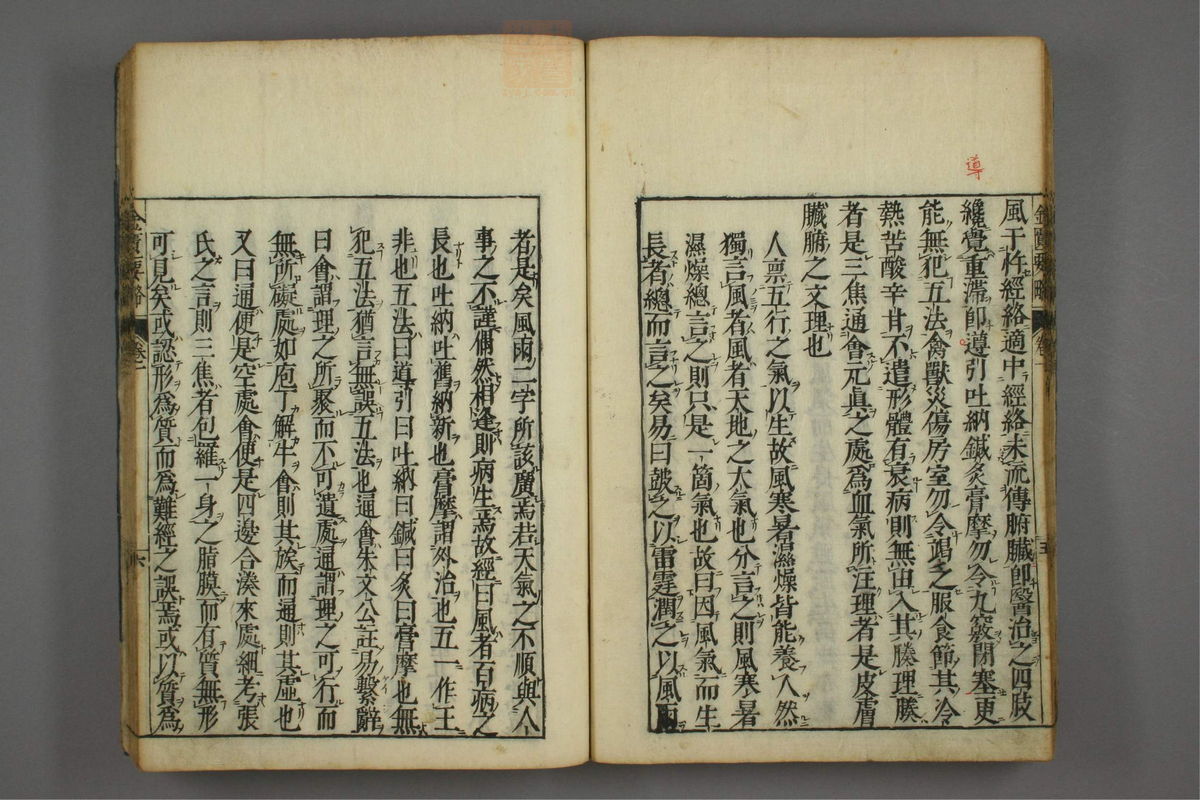 導
風干忤經絡適中經絡未流傳腑臓卽醫治之四肢
纔覺重滯卽遵引吐納鍼灸膏摩勿令九竅閉塞更
能無犯五法禽獸災傷房室勿令竭之服食節其冷
熱苦酸辛甘不遺形體有衰病則無由入其腠理腠
者是三焦通會元真之處爲血氣所注理者是皮膚
臓腑之文理也
人禀五行之氣以生故風寒暑濕燥皆能養人然
獨言風者風者天地之大氣也分言之則風寒暑
濕燥總言之則只是一箇氣也故曰因風氣而生
長者總而言之矣易曰皷之以雷霆潤之以風雨
金匱要略 卷一 五
者是矣風雨二字所該廣焉若天氣之不順與人
事之不謹偶然相逢則病生焉故經曰風者百病之
長也吐納吐舊納新也膏摩謂外治也五一作王
非也五法曰道引曰吐納曰鍼曰灸曰膏摩也無
犯五法猶言無誤五法也通會朱文公註易繫辭
曰會謂理之所聚而不可遺處通謂理之可行而
無所礙處如庖丁解牛會則其族而通則其虛也
又曰通便是空處會便是四邊合湊來處細考張
氏之言則三焦者包羅一身之脂膜而有質無形
可見矣或認形爲質而爲難經之誤焉或以質爲
金匱要略 卷一 六